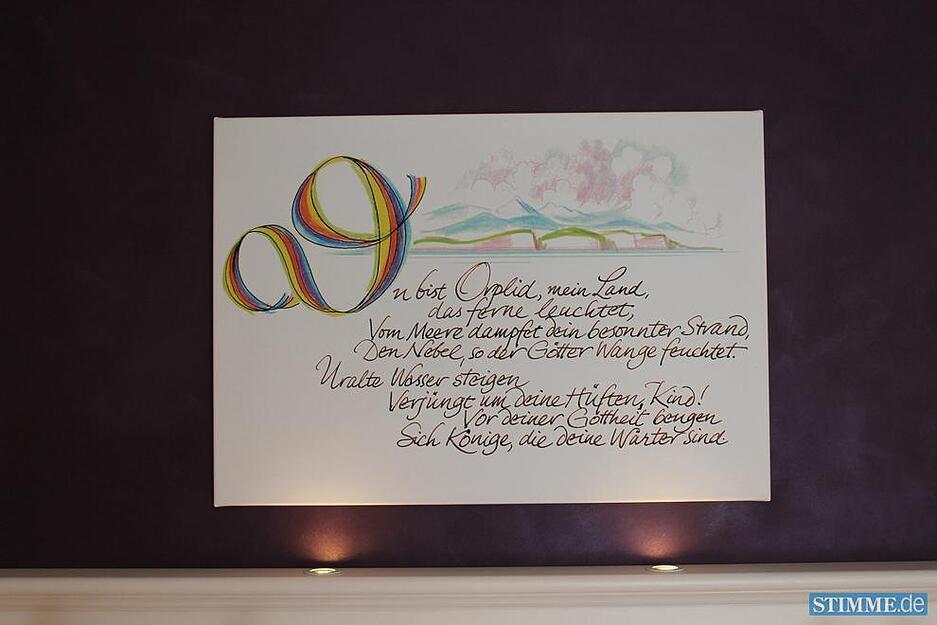 Du bist Orplid, mein Land,
das ferne leuchtet,
Vom Meere dampfet dein besonnter Strand,
Den Nebel, so der Götter Wange feuchtet.
Uralte Wasser steigen
Verjüngt um deine Hüften, Kind!
Vor deiner Gottheit beugen
Sich Könige, die deine Wärter sind.
STIMME.de